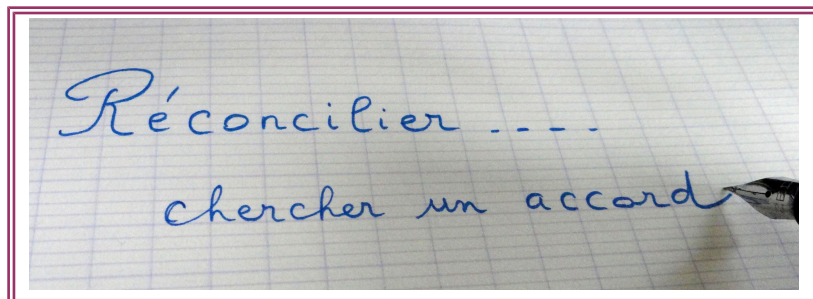 Réconcilier ....
chercher un accord